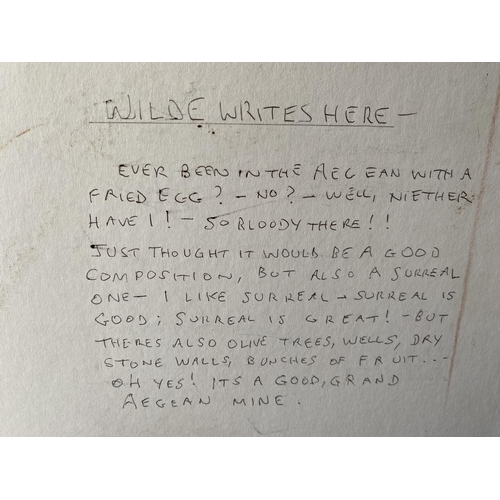 WILDE WRITES HERE —
EVER BEEN IN THE AEGEAN WITH A
FRIED EGG? — NO? — WELL, NIETHER
HAVE I! — SO BLOODY THERE!!
JUST THOUGHT IT WOULD BE A GOOD
COMPOSITION, BUT ALSO A SURREAL
ONE — I LIKE SURREAL — SURREAL IS
GOOD; SURREAL IS GREAT! — BUT
THERES ALSO OLIVE TREES, WELLS, DRY
STONE WALLS, BUNCHES OF FRUIT...-
OH YES! ITS A GOOD, GRAND
AEGEAN MINE.